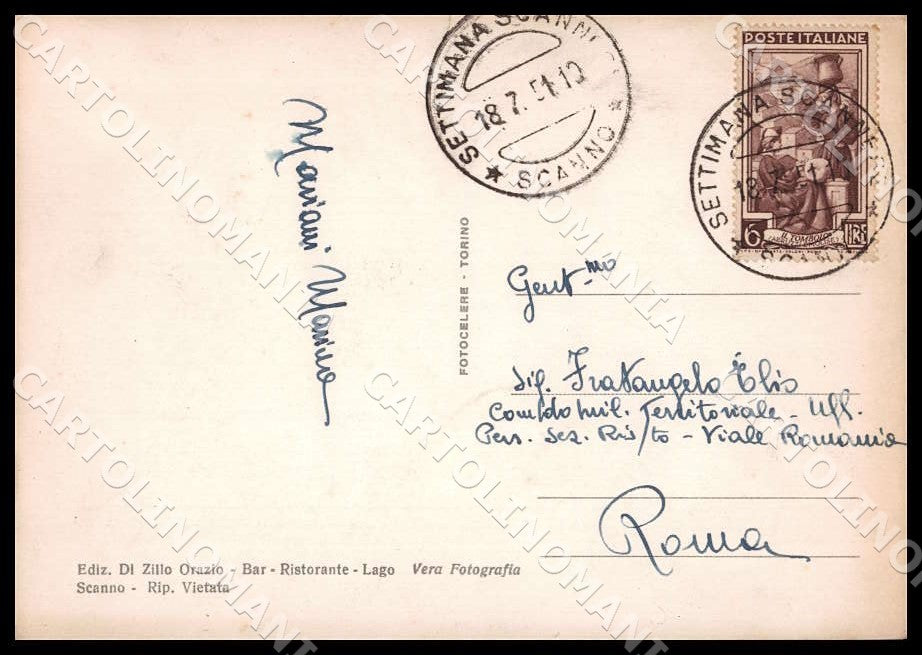 SETTIMANA SCANNESE
18.7.51.12
★ SCANNO ★
POSTE ITALIANE
SETTIMANA SCANNESE
18.7.51
★ SCANNO ★
IL TOMBOLO
6 LIRE
Mariani Marino
FOTOCELERE - TORINO
Gent.mo
Sig. Fratangelo Elio
Com/do mil. Territoriale - Uff.
Pers. Sez. Ris/to - Viale Romania
Roma
Ediz. Di Zillo Orazio - Bar - Ristorante - Lago Vera Fotografia
Scanno - Rip. Vietata
CARTOLINOMANIA